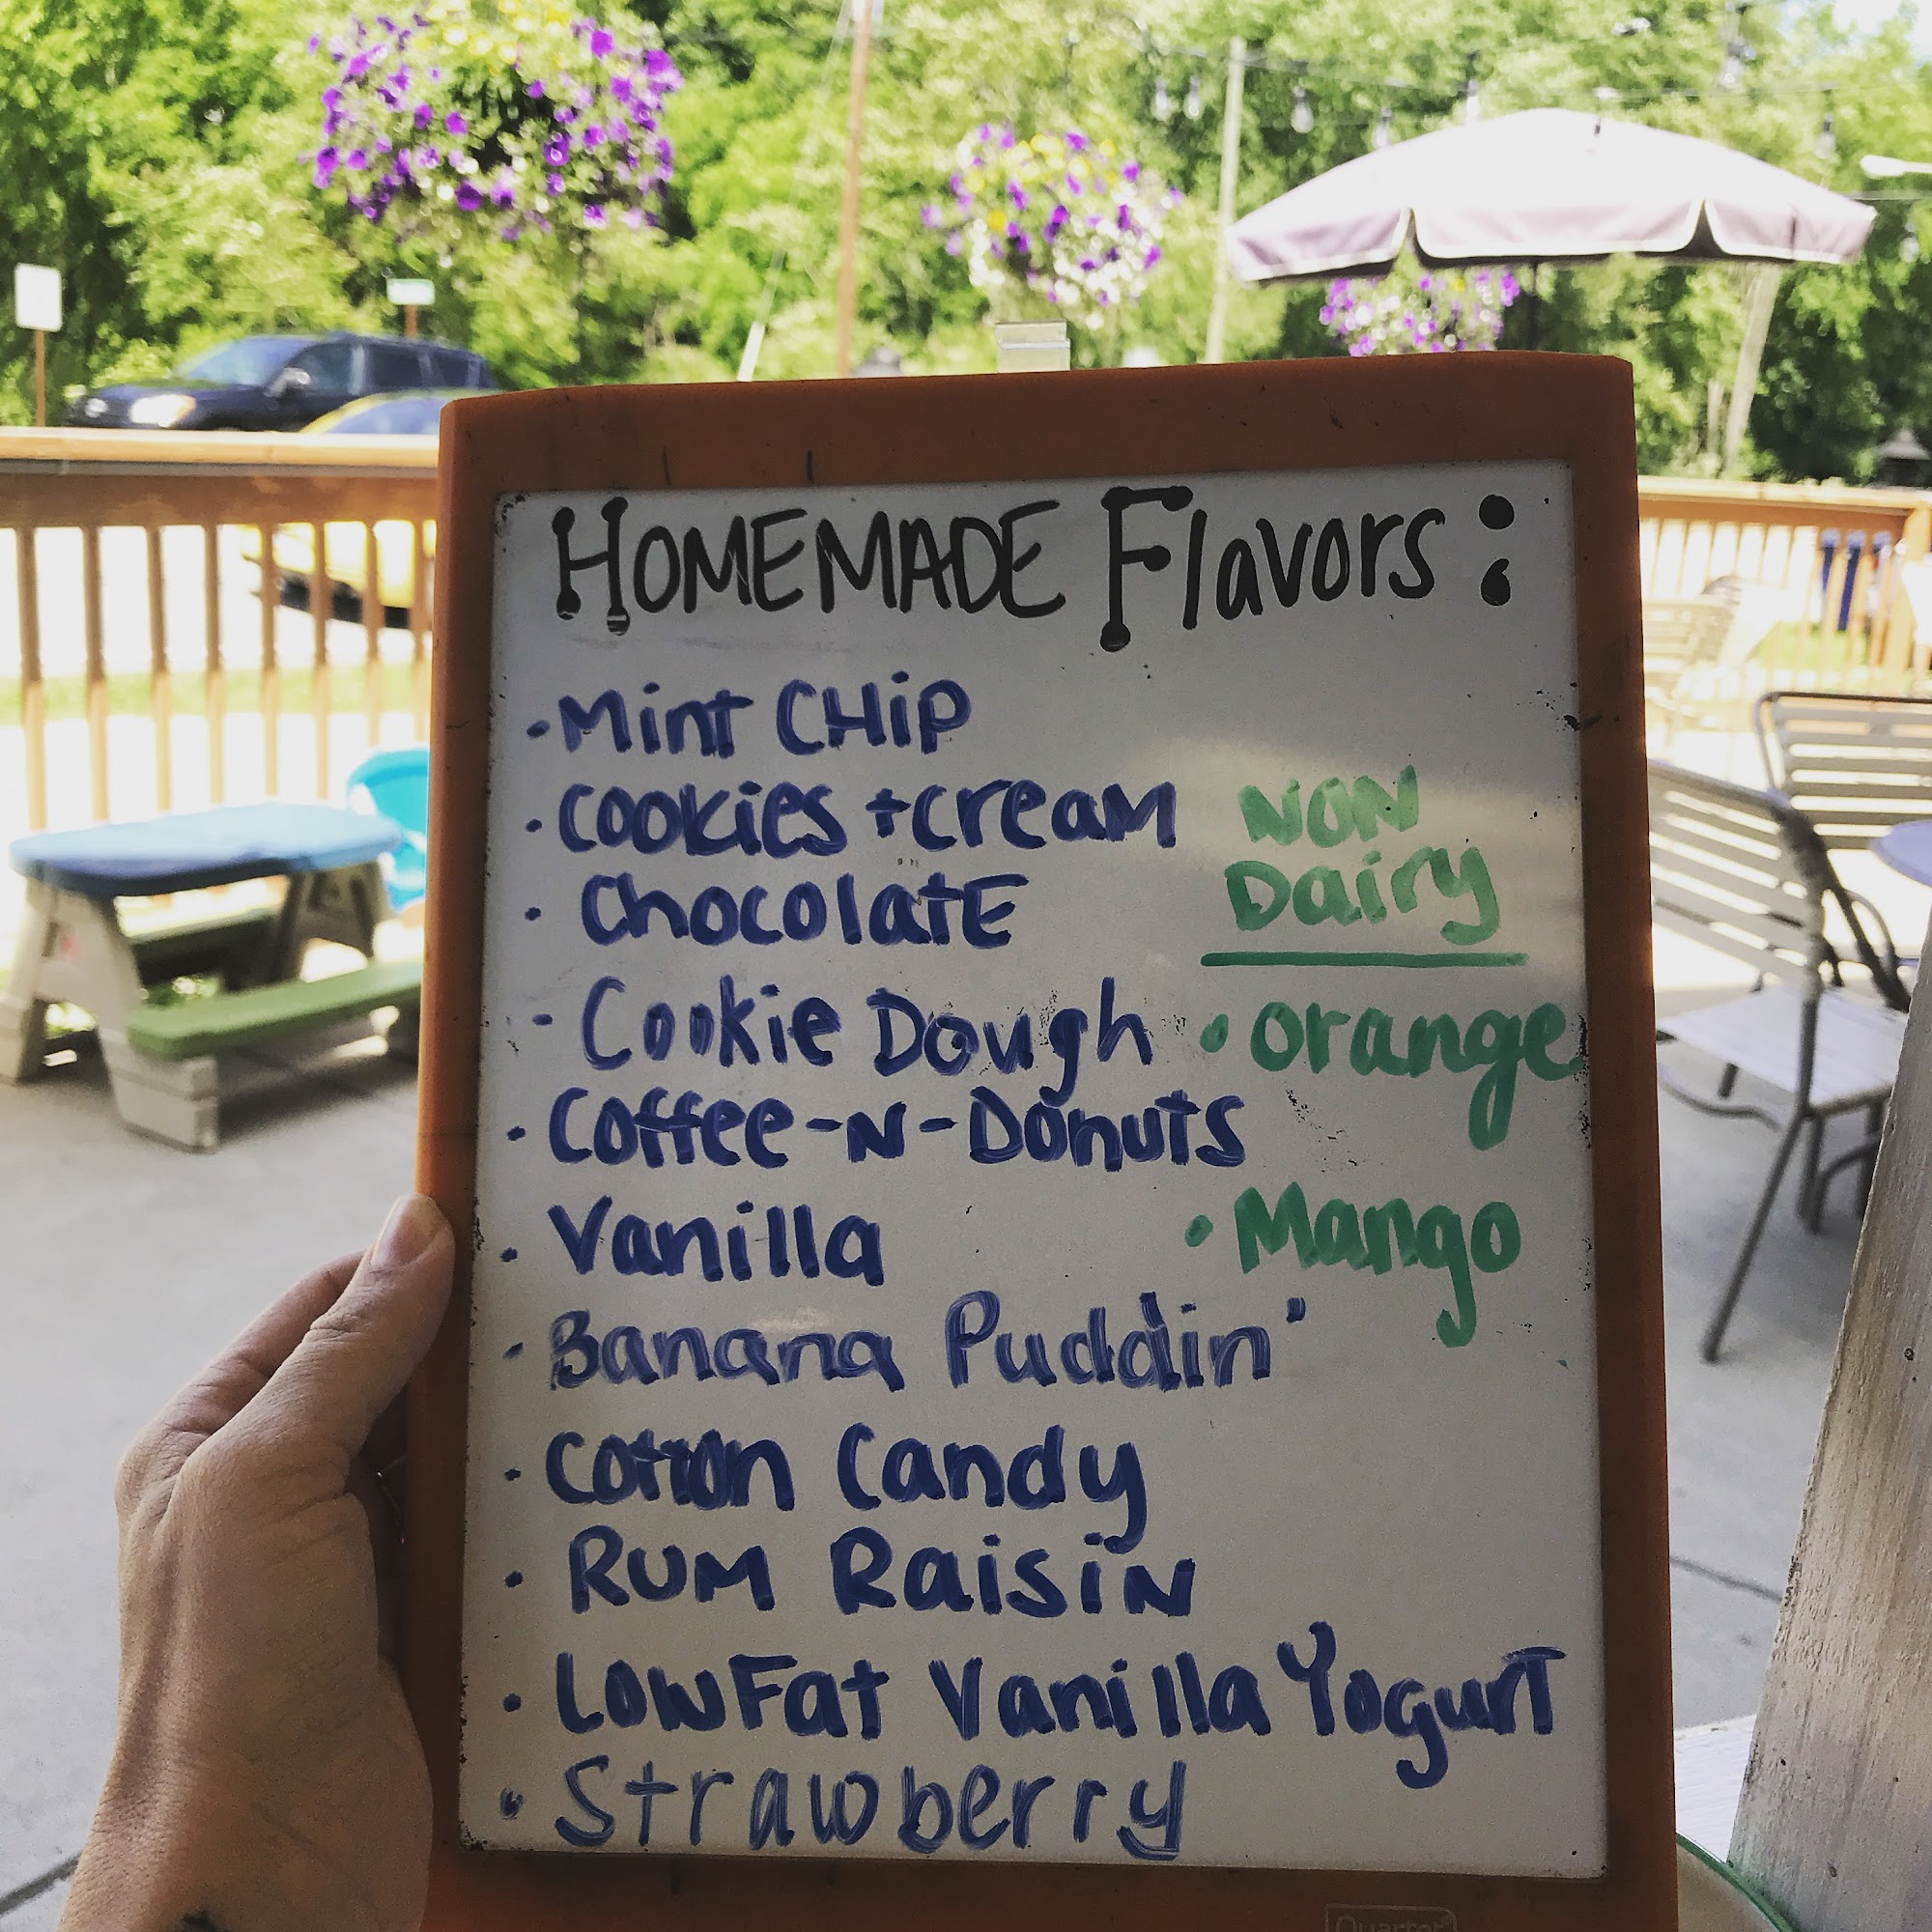 HOMEMADE Flavors :
• Mint CHiP
• Cookies + Cream
• ChocolatE
- Cookie Dough
• Coffee-N-Donuts
• Vanilla
• Banana Puddin'
• Cotton Candy
• RUM RaisiN
• LowFat Vanilla Yogurt
• Strawberry
NON
Dairy
• Orange
• Mango
Quartet